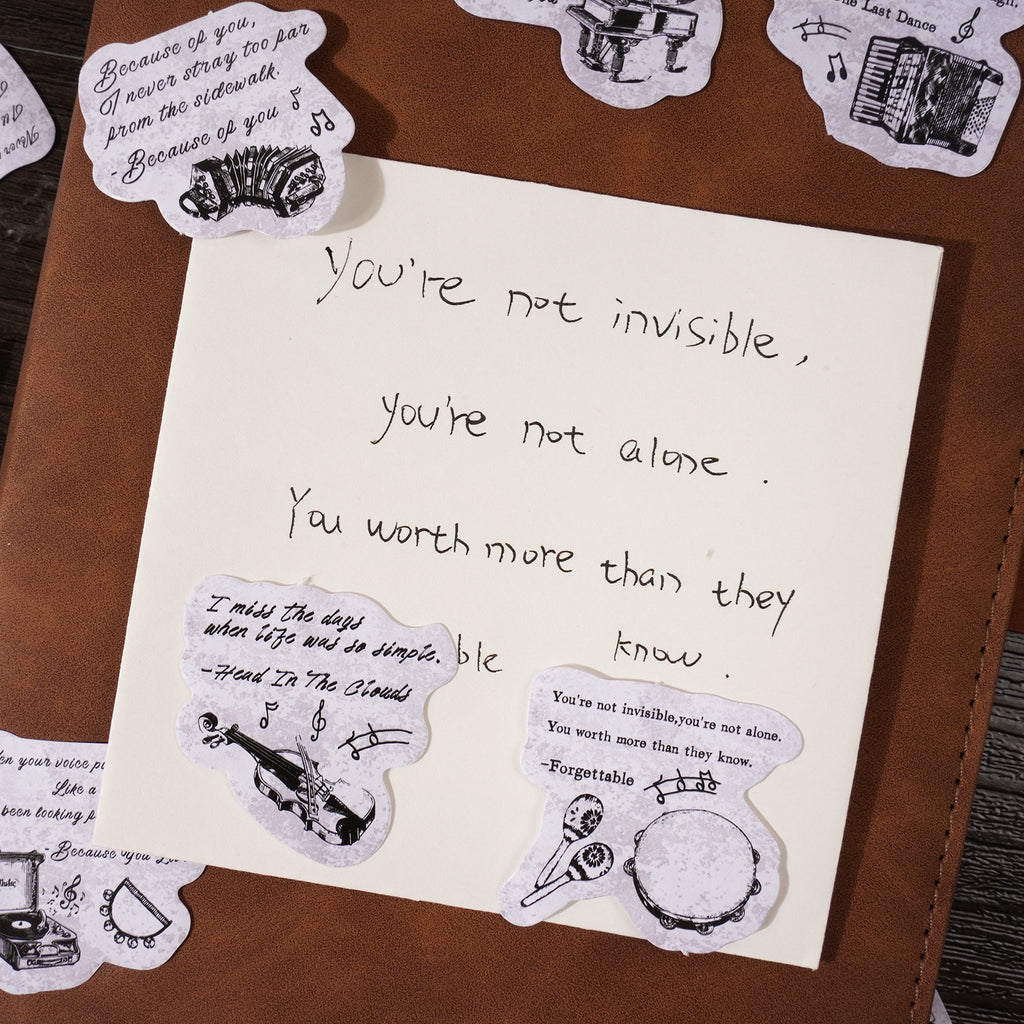 Because of you,
I never stray too far
from the sidewalk.
- Because of you
The Last Dance
You're not invisible,
you're not alone.
You worth more than they
know.
I miss the days
when life was so simple.
-Head In The Clouds
You're not invisible,you're not alone.
You worth more than they know.
-Forgettable
your voice
Like a
been looking
- Because